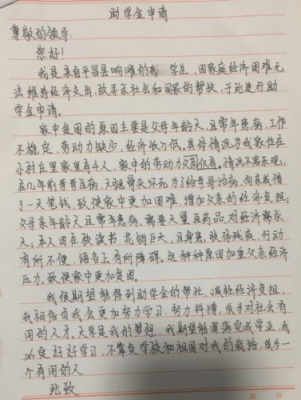 助学金申请
尊敬的领导:
您好!
我是来自平昌县响滩的学生,因家庭经济困难无
法维持经济支出,故寻求社会和国家的帮扶,于此进行助
学金申请。
家中贫困的原因主要是父母年龄大,且常年患病,工作
不稳定,劳动力缺少,经济收入低。具体情况为我家住在
小村庄里家里有4人,家中的劳动力父母仅有。情况不容乐观,
在几年前哥哥生病,父母费尽死力给哥哥治病,向亲戚借
了一大笔钱,致使家中更加困难,增加父亲的经济负担,
父母亲年龄大且常年患病,需要大量医药品,对经济需求
大,本人因在校读书,花销巨大,且身患肢体残疾,行动
有所不便,语言上有所障碍。这种种原因加重父亲经济
压力,致使家中更加贫困。
我很期望能得到助学金的帮扶,减轻经济负担,
我相信我会更加努力学习,努力拼搏,成为对社会有
用的人才。大学是我的梦想,我期望能圆满完成学业,我
以后好好学习,不辜负学校和祖国对我的栽培,成为一
个有用的人
此致